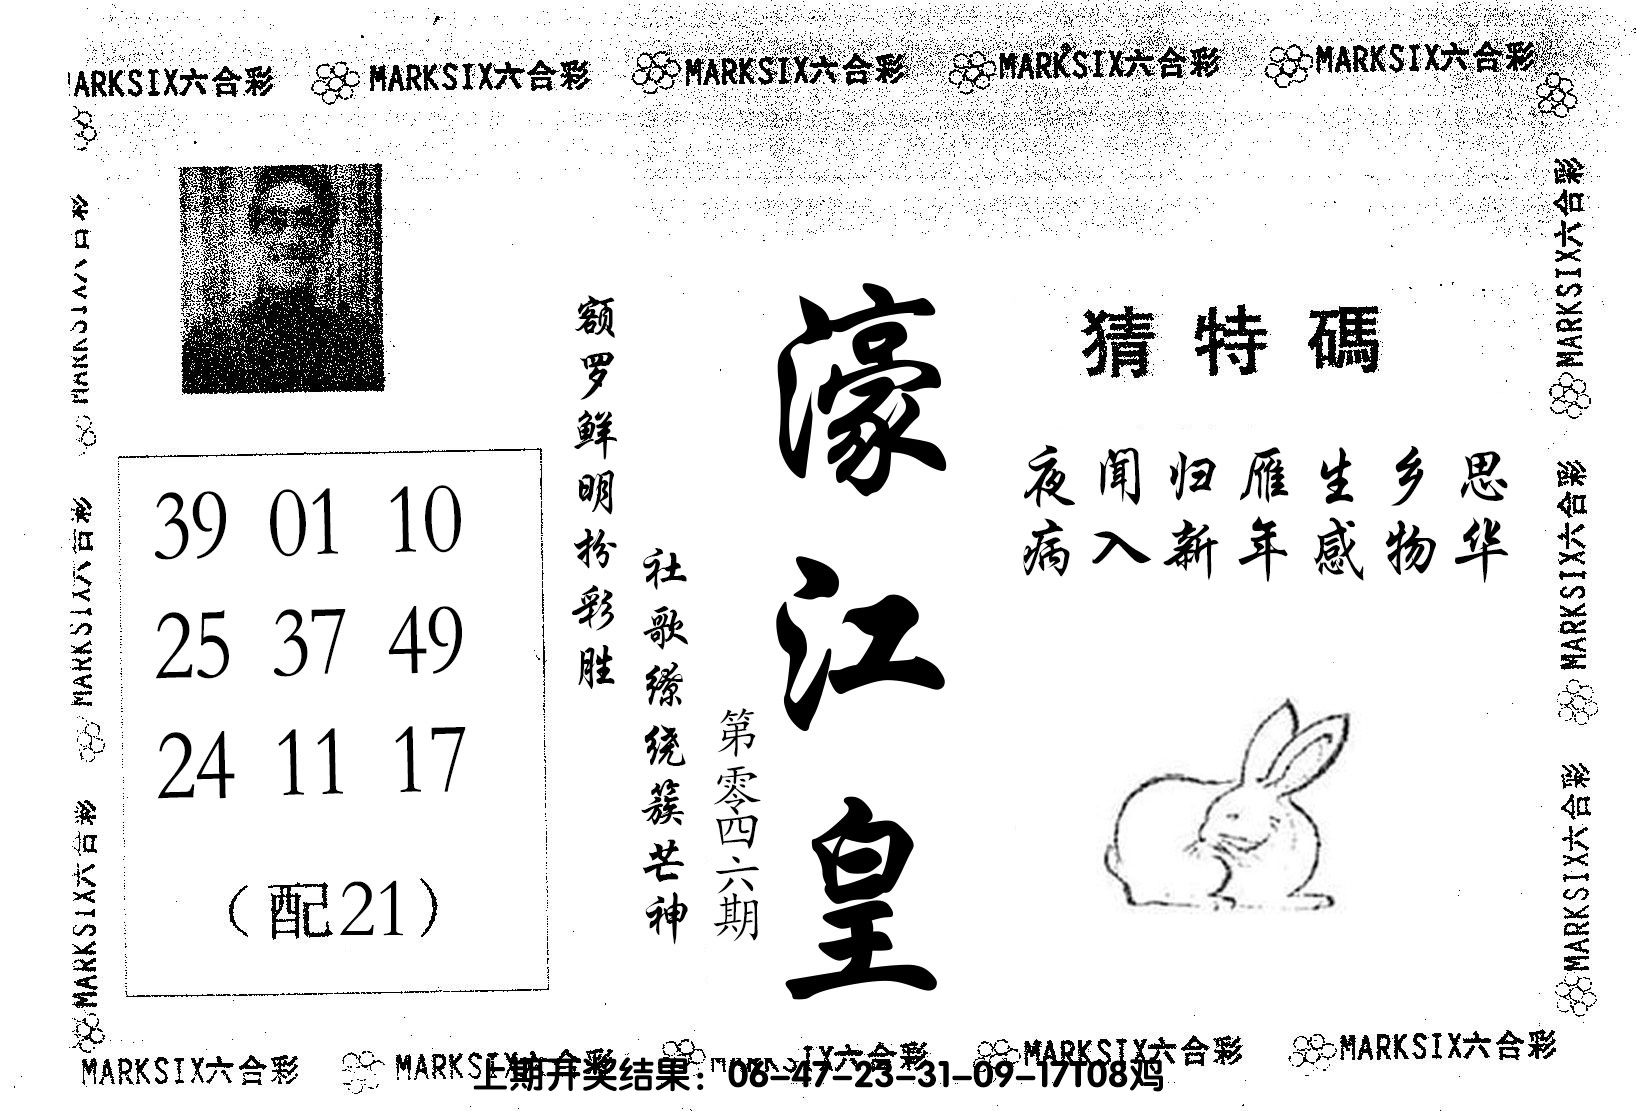 MARKSIX六合彩 MARKSIX六合彩 MARKSIX六合彩 MARKSIX六合彩 MARKSIX六合彩
猜特碼
夜闻归雁生乡思
病入新年感物华
濠江皇
第零四六期
社歌缭绕簇芒神
额罗鲜明扮彩胜
39 01 10
25 37 49
24 11 17
（配21）
MARKSIX六合彩
MARKSIX六合彩
MARKSIX六合彩
MARKSIX六合彩
MARKSIX六合彩
MARKSIX六合彩
MARKSIX六合彩 MARKSIX六合彩 MARKSIX六合彩 MARKSIX六合彩
上期开奖结果：06-47-23-31-09-17T08鸡